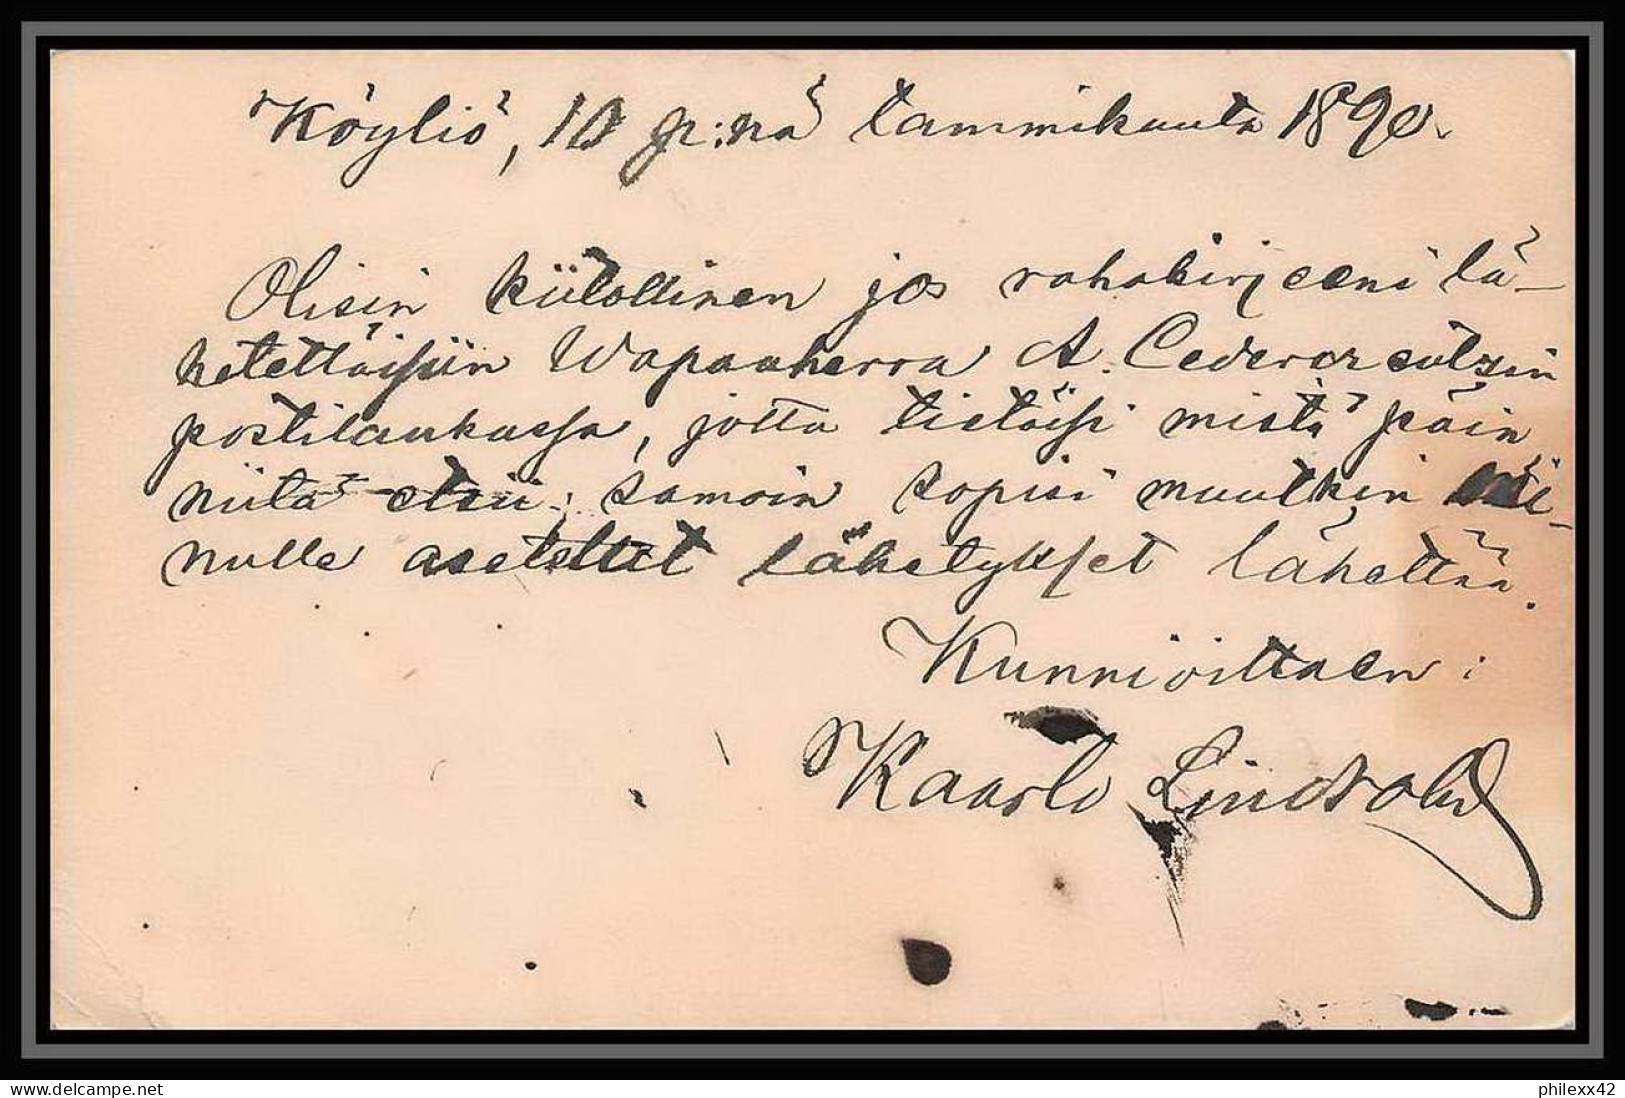 Köyliö, 10 p:nä tammikuuta 1890.
Olisin kiitollinen jos rahakirjeeni lä-
hetettäisiin Wapaaherra A. Cedercreutzin
postilaukussa, jotta tietäisi mistä päin
niitä etsii; samoin sopisi muutkin mi-
nulle asetetut lähetykset lähettää.
Kunnioittaen:
Kaarlo
www.delcampe.net
philexx42